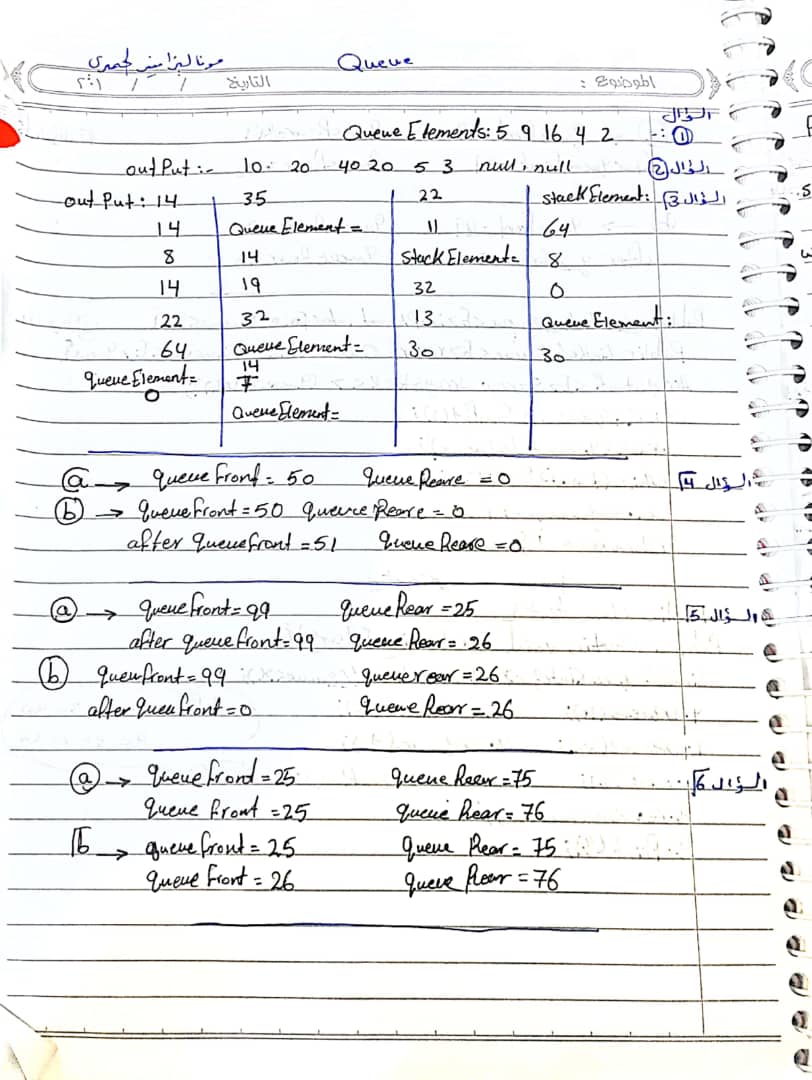 Queue
الموضوع : التاريخ / / ٢٠م
السؤال ① :- Queue Elements: 5 9 16 4 2
السؤال ② outPut :- 10 . 20 . 40 20 5 3 null, null
السؤال 3 out Put : 14 35 22 stack Element:
14 Queue Element = 11 64
8 14 Stack Element= 8
14 19 32 0
22 32 13 Queue Element :
64 Queue Element = 30 30
queue Element= 14
0 7
Queue Element=
السؤال 4 ⓐ → queue front = 50 queue Reare = 0
ⓑ → queue front = 50 queuce Reare = 0
after queue front = 51 Queue Reare = 0
السؤال 5 ⓐ → queue front = 99 queue Rear = 25
after queue front = 99 queue Rear = 26
ⓑ queu front = 99 queue rear = 26
after queu front = 0 queue Rear = 26
السؤال 6 ⓐ → queue frond = 25 queue Rear = 75
queue front = 25 queue Rear = 76
b → queue front = 25 queue Rear = 75
queue front = 26 queue Rear = 76